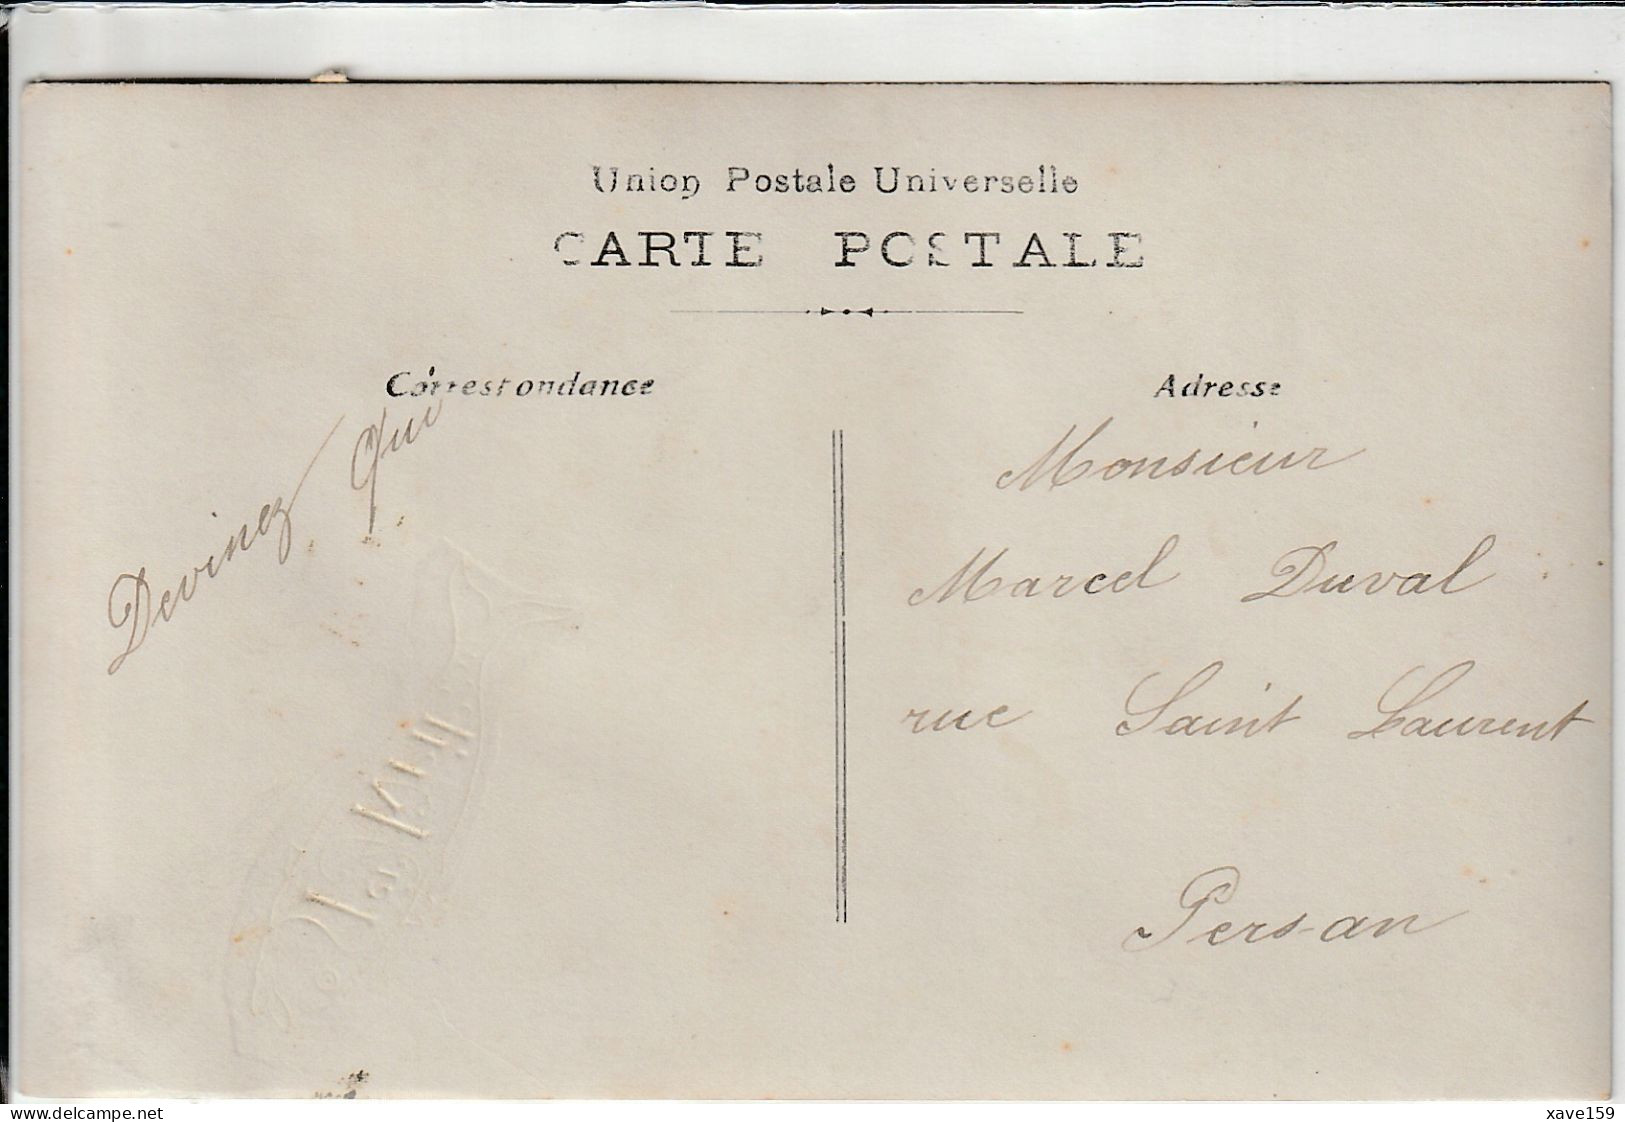 Union Postale Universelle
CARTE POSTALE
Correspondance
Adresse
Devinez Qui
Monsieur
Marcel Duval
rue Saint Laurent
Persan
www.delcampe.net
xave159